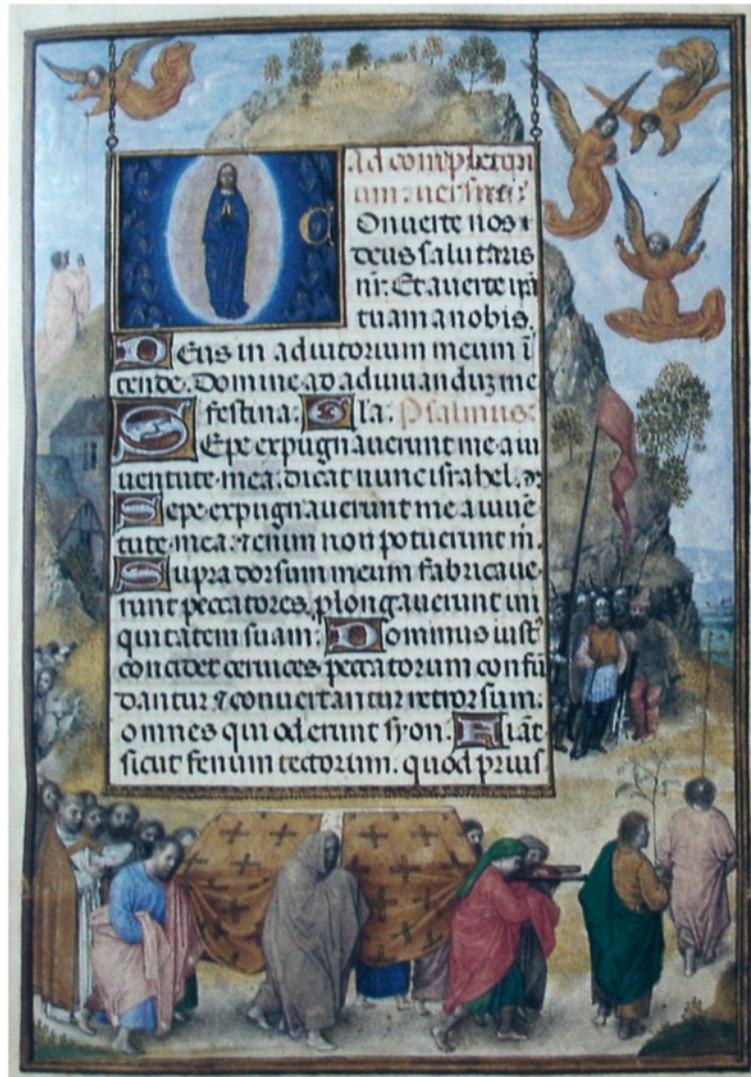 Ad completori
um: versus:
Onverte nos
deus salutaris
nr: Et averte irā
tuam a nobis.
Eus in adiutorium meum ī
tende. Domine ad adiuvanduz me
festina: Gla: Psalmus:
Sepe expugnaverunt me a iu
ventute mea. dicat nunc israhel.
Sepe expugnaverunt me a iuvē
tute mea: etenim non potuerunt m.
Supra dorsum meum fabricave
runt peccatores. plongaverunt ini
quitatem suam: Dominus iust
concidet cervices peccatorum confū
dantur ⁊ convertantur retrorsum:
omnes qui oderunt syon: Fiāt
sicut fenum tectorum. quod prius